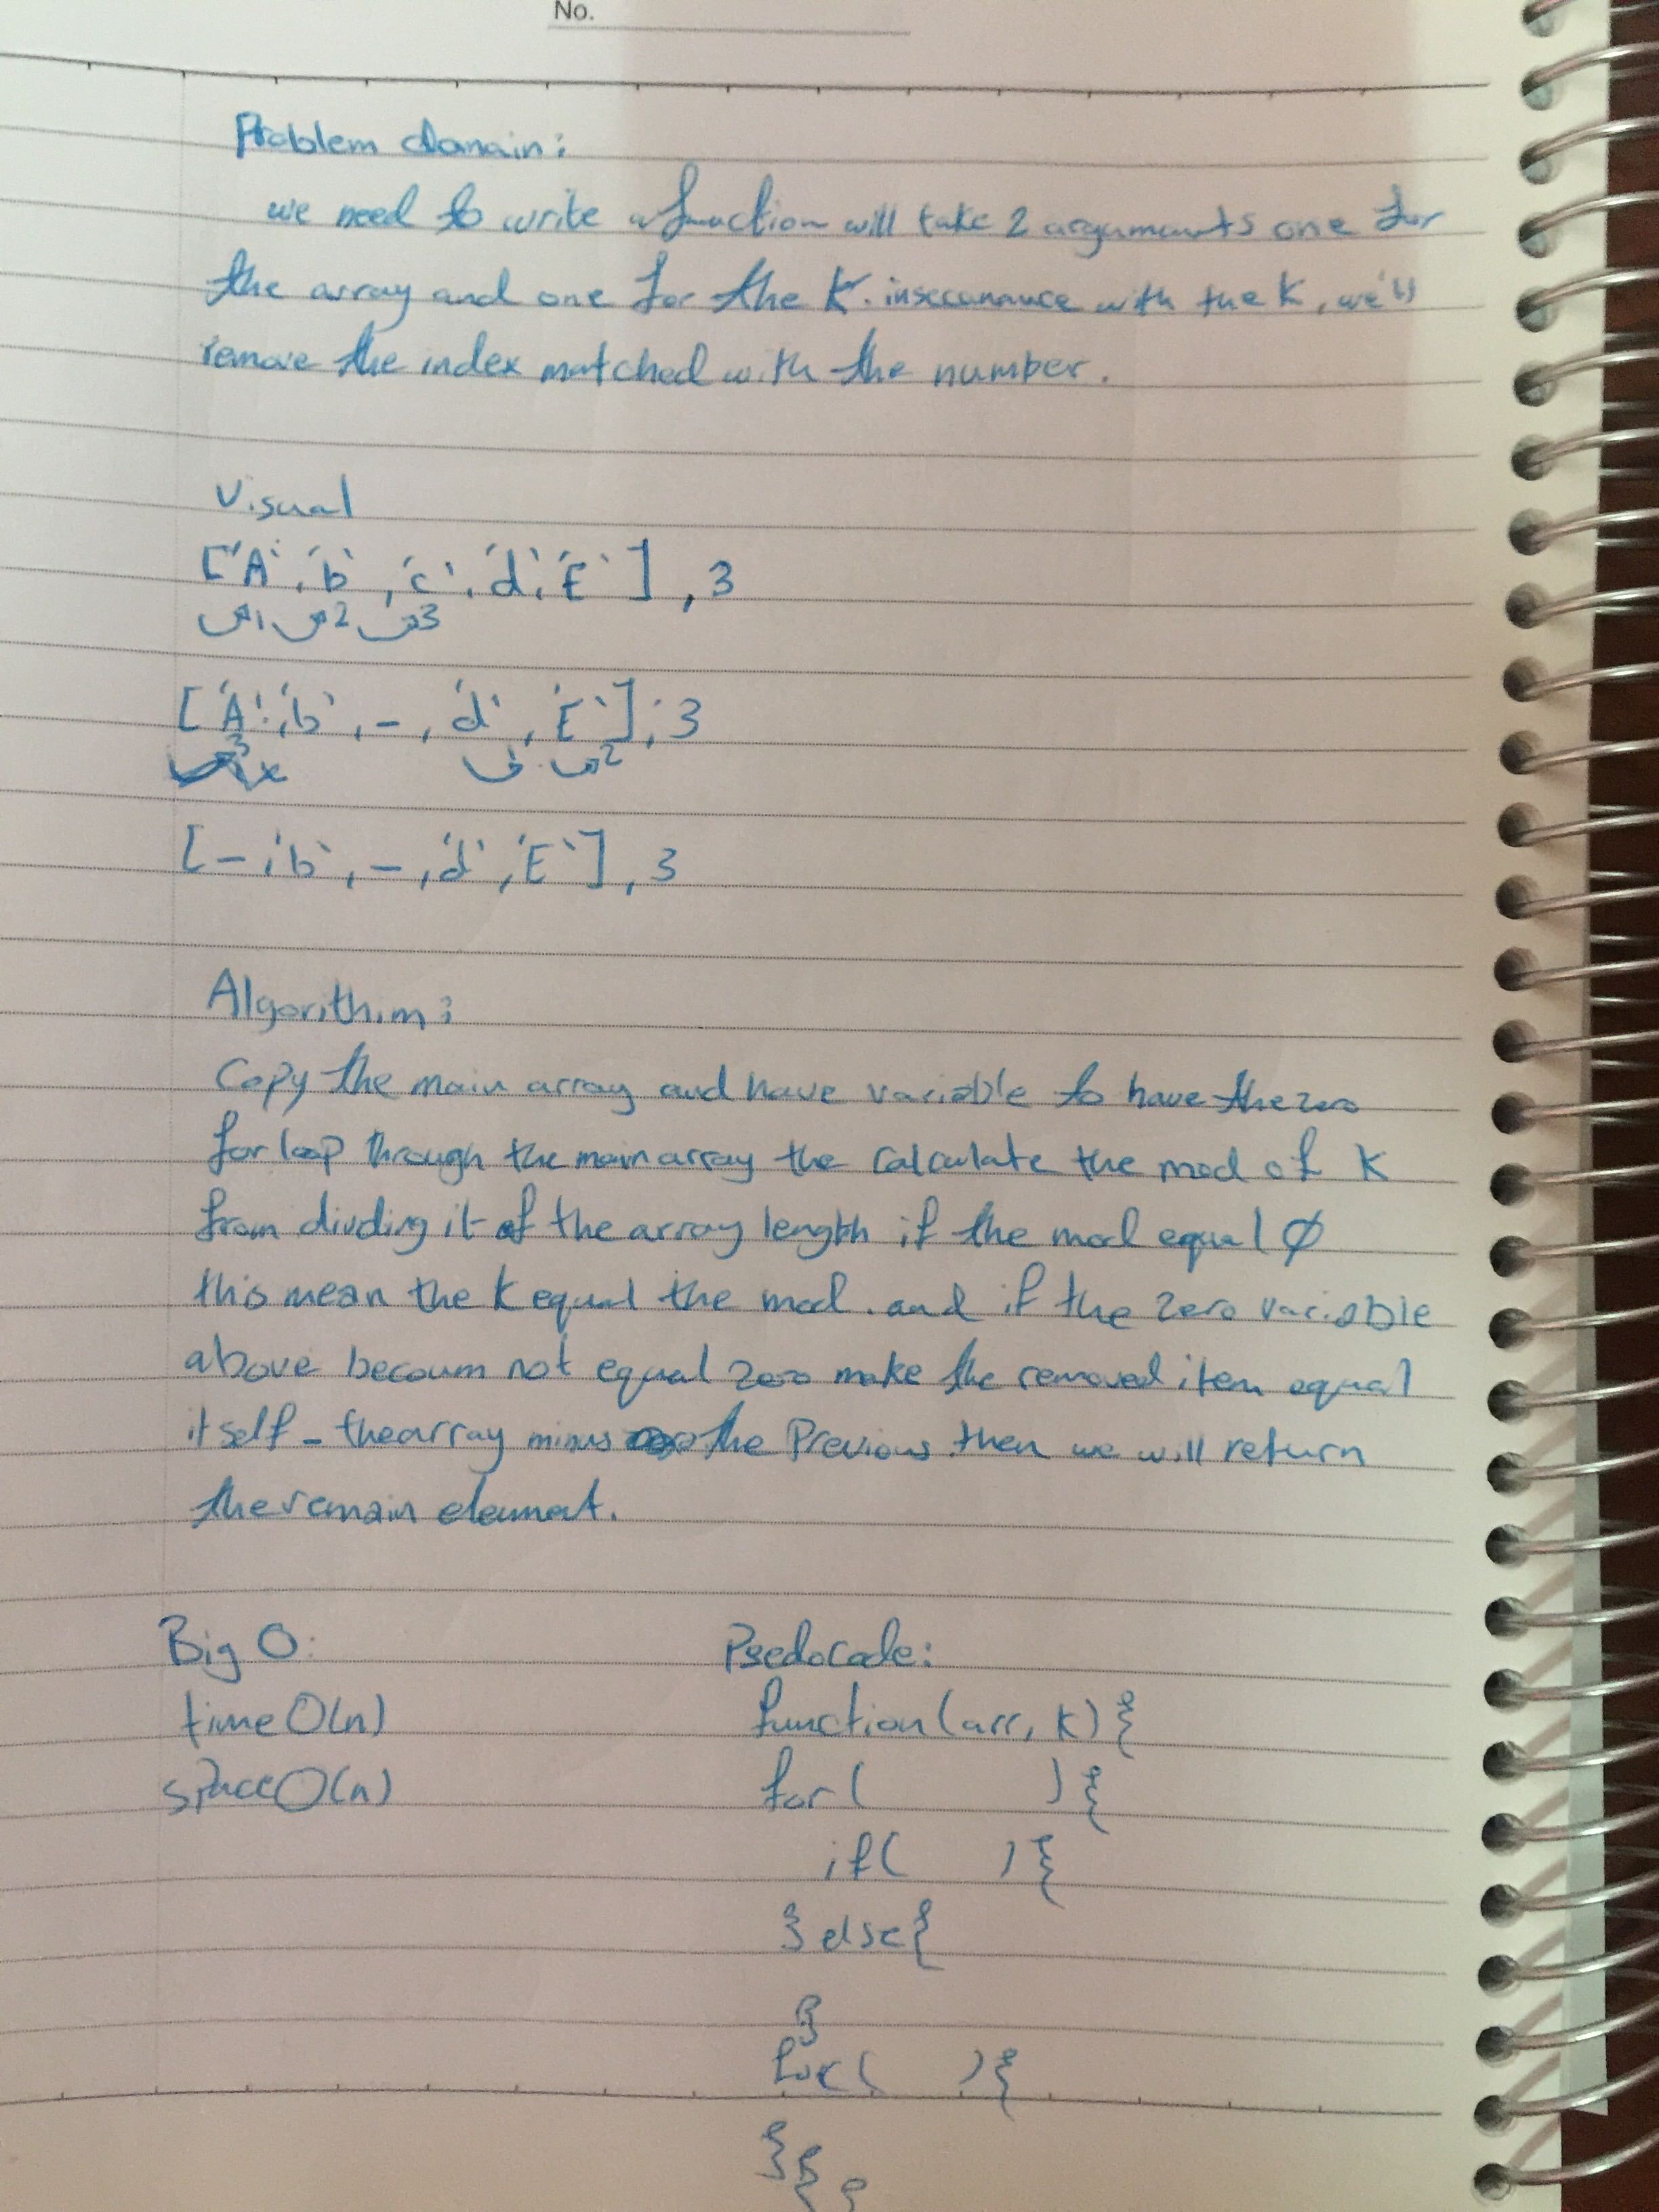 No.
Problem domain:
we need to write a function will take 2 arguments one for
the array and one for the K. with the K, we'll
remove the index matched with the number.
Visual
['A', 'b', 'c', 'd', 'E'], 3
1 2 3
['A', 'b', -, 'd', 'E'], 3
3 x 1 2
[-, 'b', -, 'd', 'E'], 3
Algorithim:
Copy the main array and have variable to have the zero
for loop through the main array the calculate the mod of K
from divding it of the array length if the mod equal 0
this mean the K equal the mod. and if the zero variable
above becoum not equal zero make the removed item equal
itself - the array minus the Previous then we will return
the remain element.
Big O: Psedocode:
time O(n) function(arr, K){
space O(n) for( ){
if( ){
} else{
}
for( ){
}